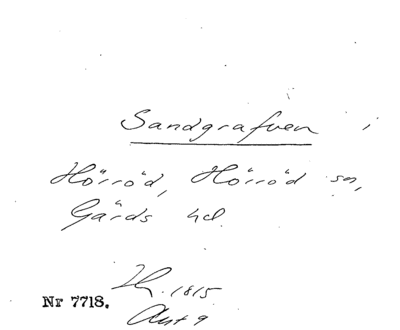 Sandgrafven i
Hörröd, Hörröd sn,
Gärds hd.
1815
Nr 7718.
Ant 9